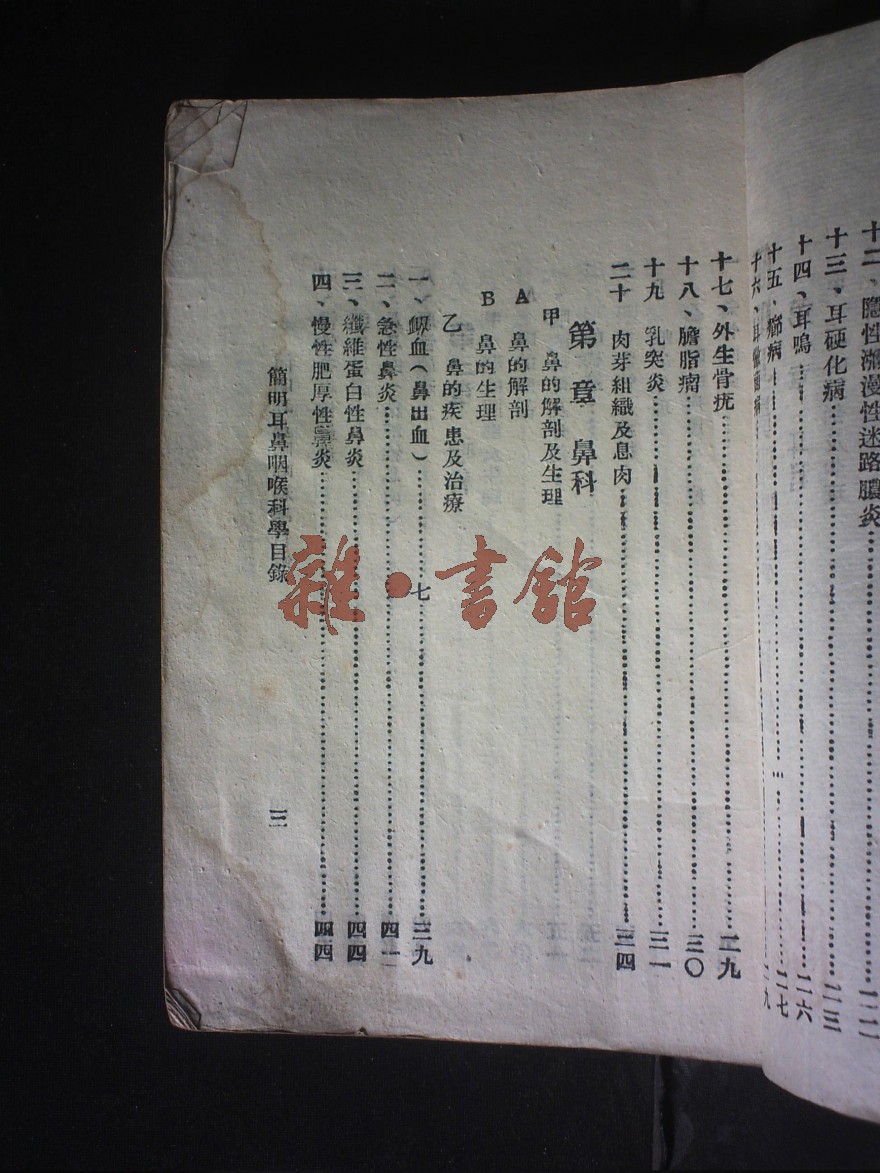 十三、耳硬化病……二三
十四、耳鳴……二六
十五、癤病……二七
十七、外生骨疣……二九
十八、膽脂瘤……三〇
十九 乳突炎……三一
二十 肉芽組織及息肉……三四
第 章 鼻科
甲 鼻的解剖及生理
A 鼻的解剖
B 鼻的生理
乙 鼻的疾患及治療
一、衂血(鼻出血)……七……三九
二、急性鼻炎……四一
三、纖維蛋白性鼻炎……四四
四、慢性肥厚性鼻炎……四四
簡明耳鼻咽喉科學目錄 三
雜·書館